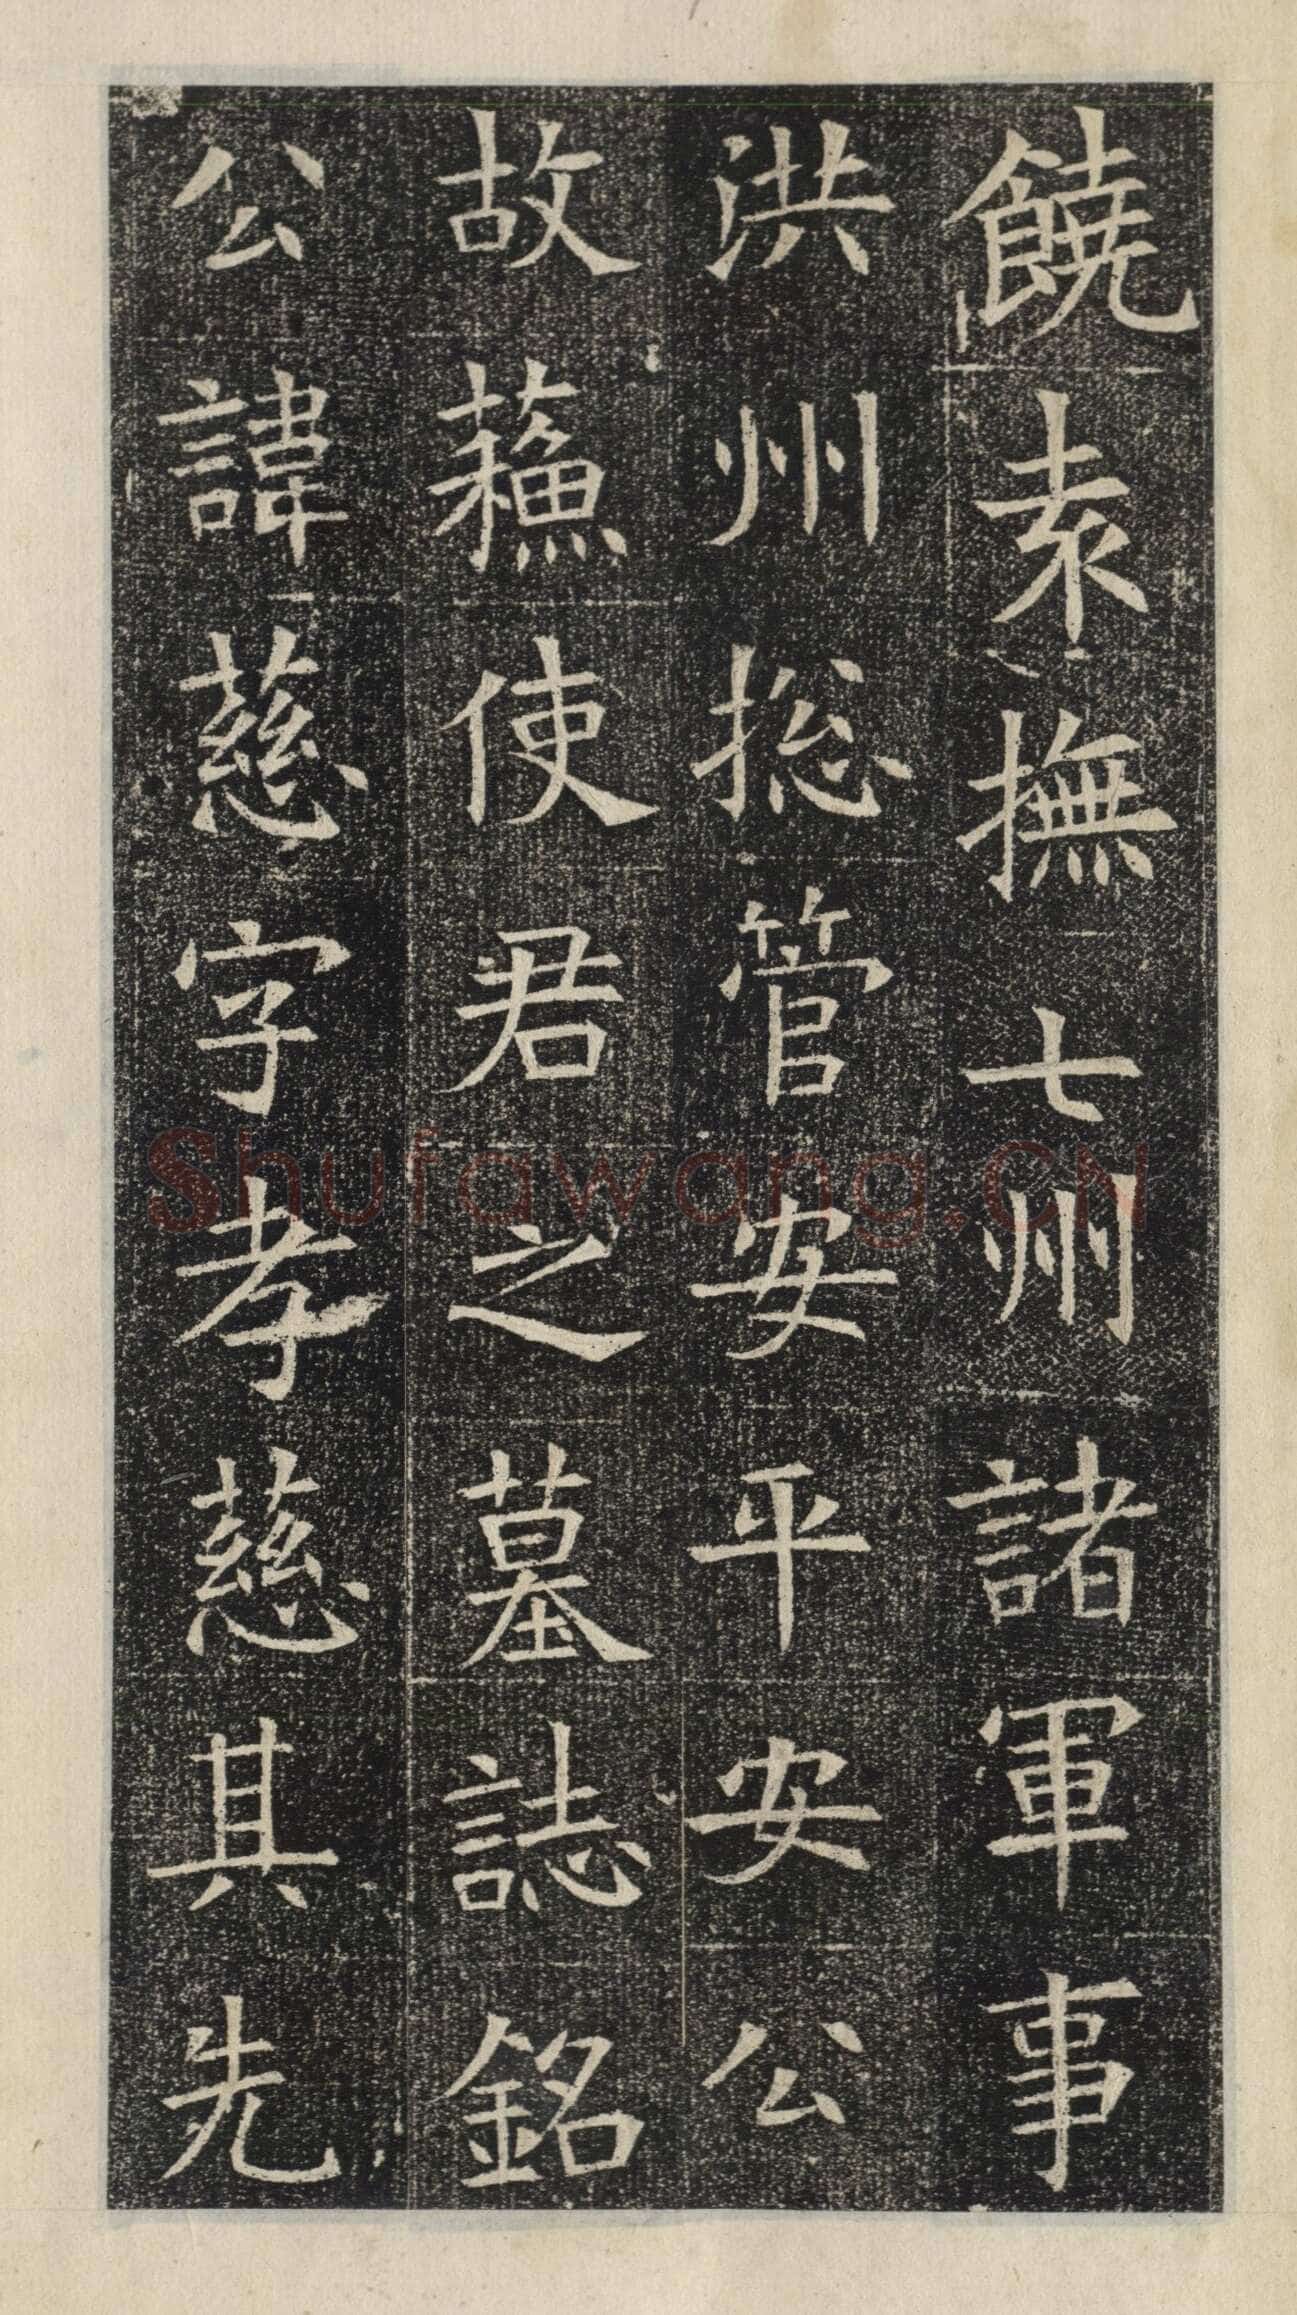 饒袁撫七州諸軍事
洪州揔管安平安公
故蘓使君之墓誌銘
公諱慈字孝慈其先
Shufawang.CN